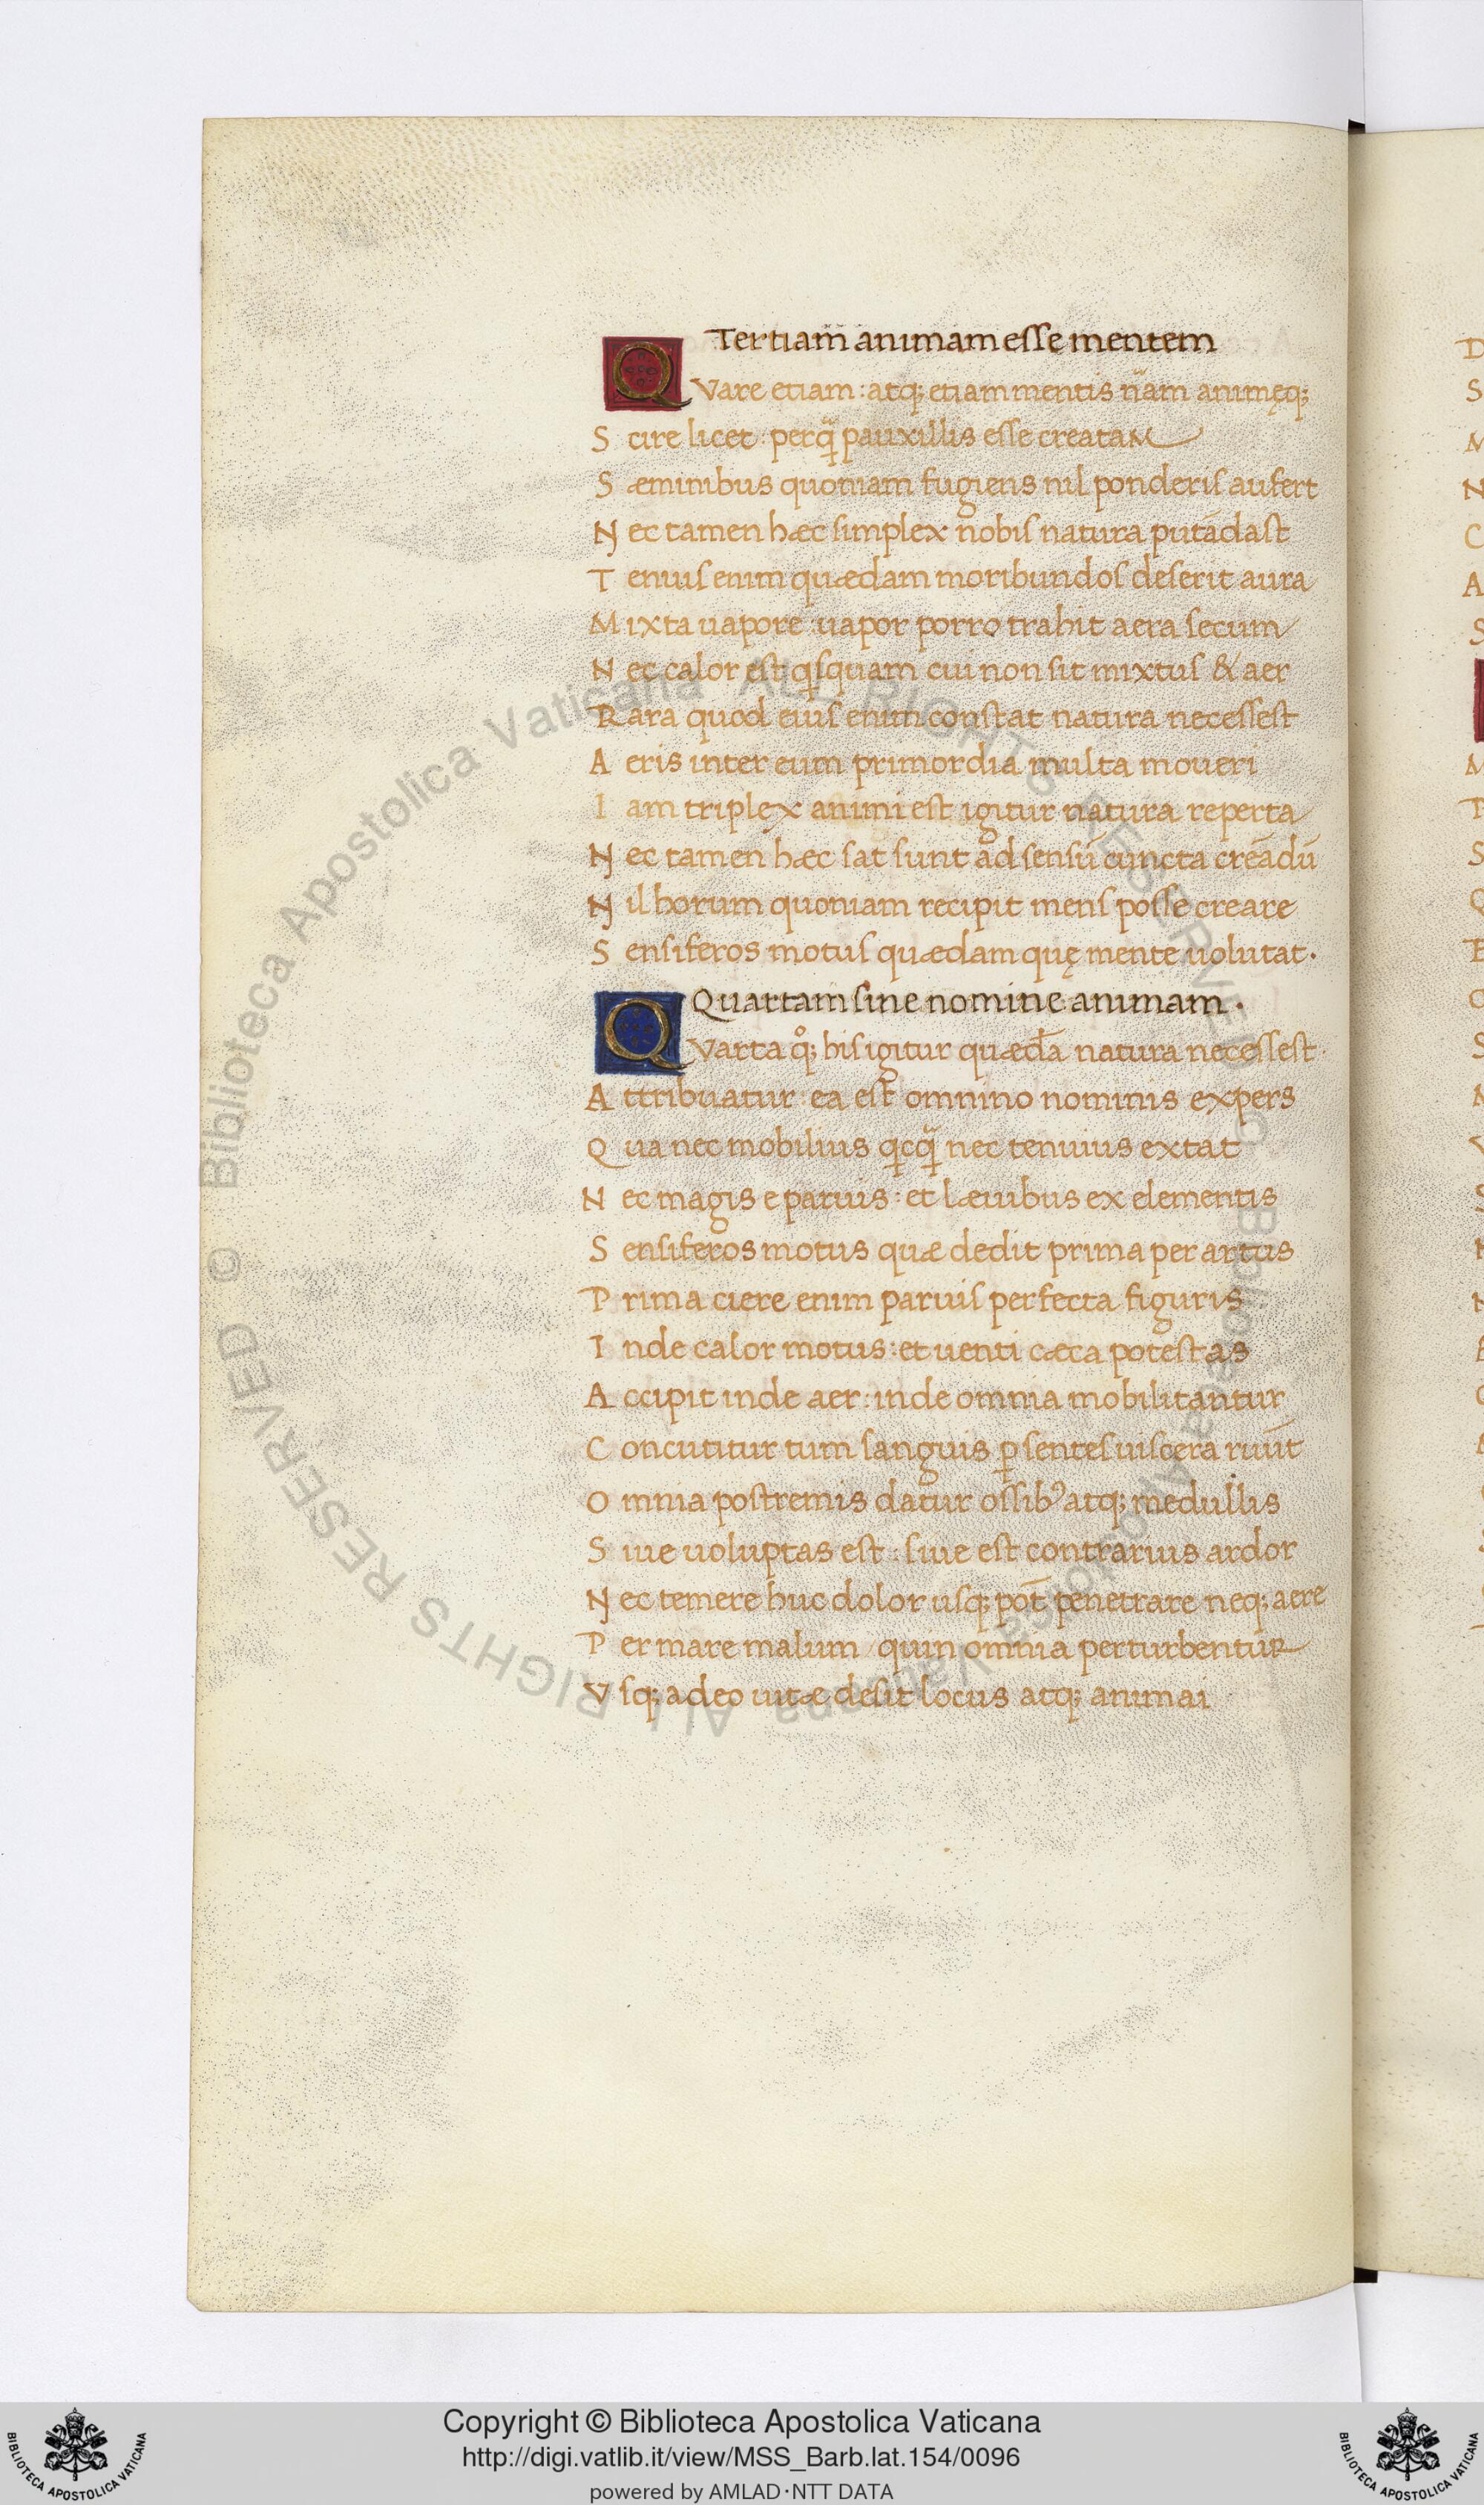 Tertiam̄ animam esse mentem
QVare etiam : atq; etiam mentis nr̄am animęq;
Scire licet : perq̄ pauxillis esse creataM
Sæminibus quoniam fugiens nil ponderis aufert
Nec tamen hæc simplex nobis natura putādast
Tenuis enim quædam moribundos deserit aura
Mixta uapore : uapor porro trahit aera secum
Nec calor est qisquam cui non sit mixtus & aer
Rara quod eius enim constat natura necessest
Aeris inter eum primordia multa moueri
Iam triplex animi est igitur natura reperta
Nec tamen hæc sat sunt ad sensū cuncta creādū
Nil horum quoniam recipit mens posse creare
Sensiferos motus quædam quę mente uolutat.
Quartam sine nomine animam .
QVarta qͦ; his igitur quædā natura necessest.
Attribuatur : ea est omnino nominis expers
Qua nec mobilius qicq̄ nec tenuius extat
Nec magis e paruis : et læuibus ex elementis
Sensiferos motus quæ dedit prima per artus
Prima ciere enim paruis perfecta figuris
Inde calor motus : et uenti cæca potestas
Accipit inde aer : inde omnia mobilitantur
Concutitur tum sanguis ꝑsentes uiscera ruūt
Omnia postremis datur ossibꝰ atq; medullis
Siue uoluptas est : siue est contrarius ardor
Nec temere huc dolor usq; pot̄ penetrare neq; aere
Per mare malum / quin omnia perturbentuR
Vsq; adeo uitæ desit locus atq; animai
D
S
M
N
C
A
S
M
T
S
© Biblioteca Apostolica Vaticana ALL RIGHTS RESERVED © Biblioteca Apostolica Vaticana ALL RIGHTS RESERVED
Copyright © Biblioteca Apostolica Vaticana
http://digi.vatlib.it/view/MSS_Barb.lat.154/0096
powered by AMLAD·NTT DATA
BIBLIOTECA APOSTOLICA VATICANA
BIBLIOTECA APOSTOLICA VATICANA